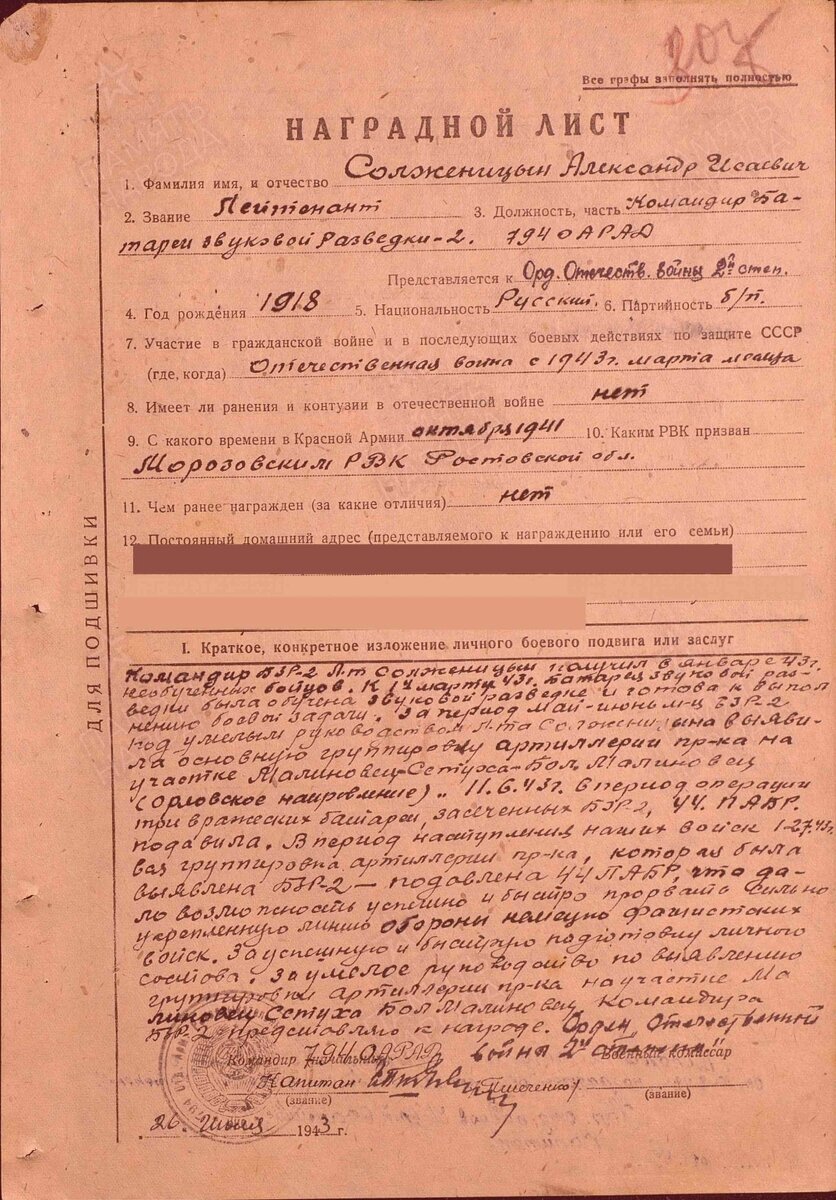 204
Все графы заполнять полностью
НАГРАДНОЙ ЛИСТ
1. Фамилия имя, и отчество Солженицын Александр Исаевич
2. Звание Лейтенант 3. Должность, часть Командир Ба-
тареи звуковой разведки-2. 794 ОАРАД
Представляется к Орд. Отечеств. войны 2й степ.
4. Год рождения 1918 5. Национальность Русский. 6. Партийность б/п.
7. Участие в гражданской войне и в последующих боевых действиях по защите СССР
(где, когда) Отечественная война с 1943 г. марта месяца
8. Имеет ли ранения и контузии в отечественной войне нет
9. С какого времени в Красной Армии октября 1941 10. Каким РВК призван
Морозовским РВК Ростовской обл.
11. Чем ранее награжден (за какие отличия) нет
12. Постоянный домашний адрес (представляемого к награждению или его семьи)
ДЛЯ ПОДШИВКИ
I. Краткое, конкретное изложение личного боевого подвига или заслуг
Командир БЗР-2 Л-т Солженицын получил в январе 43 г.
необученных бойцов. К 14 марту 43 г. батарея звуковой раз-
ведки была обучена звуковой разведке и готова к выпол
нению боевой задачи. За период май-июнь м-ц БЗР-2
под умелым руководством Л-та Солженицына выяви-
ла основную группировку артиллерии пр-ка на
участке Малиновец-Сетуха-Бол. Малиновец
(Орловское направление). 11.6.43 г. в период операции
три вражеских батареи, засеченных БЗР-2, 44 ПАБР.
подавила. В период наступления наших войск
вся группировка артиллерии пр-ка, которая была
выявлена БЗР-2 — подавлена 44 ПАБР, что да-
ло возможность успешно и быстро прорвать сильно
укрепленную линию обороны немецко фашистских
войск. За успешную и быструю подготовку личного
состава. За умелое руководство по выявлению
группировки артиллерии пр-ка на участке Ма
линовец Сетуха Бол Малиновец Командира
БЗР-2 представляю к награде. Орден Отечественной
войны 2й степени
Командир (начальник) 794 ОАРАД Военный комиссар
Капитан /Пшеченко/
(звание) (звание)
26. Июля 1943 г.